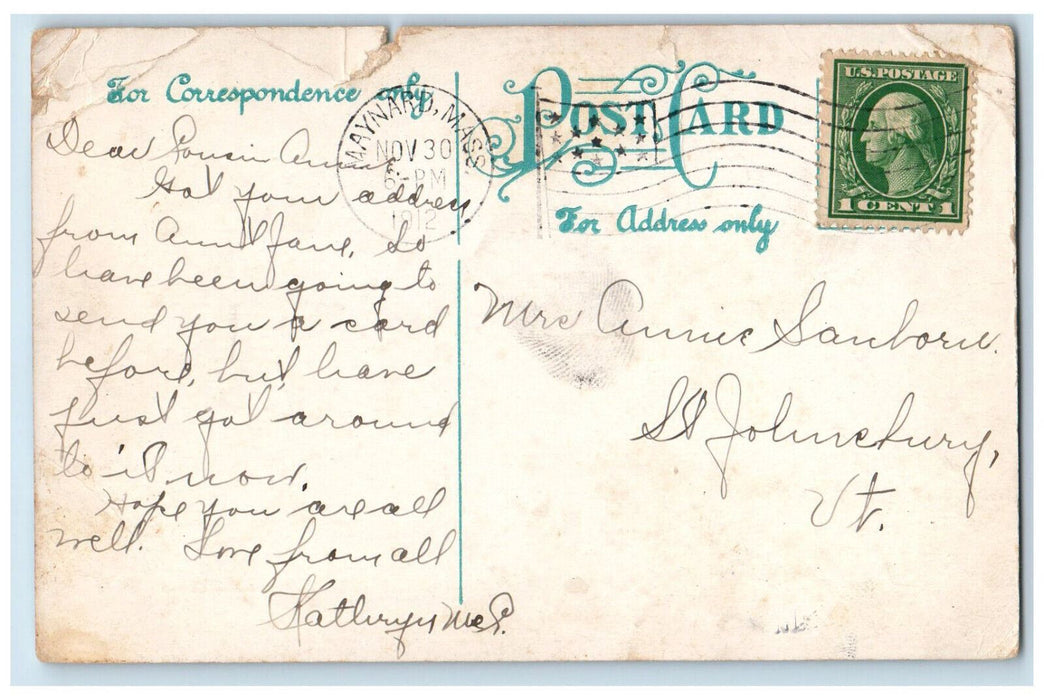 For Correspondence only
Dear Cousin Annie
Got your address
from Aunt Jane. So
have been going to
send you a card
before, but have
just got around
to it now.
Hope you are all
well. Love from all
Kathryn Mc.
MAYNARD, MASS
NOV 30
6-PM
1912
POST CARD
For Address only
U.S. POSTAGE
1 CENT 1
Mrs Annie Sanborn.
St Johnsbury,
Vt.